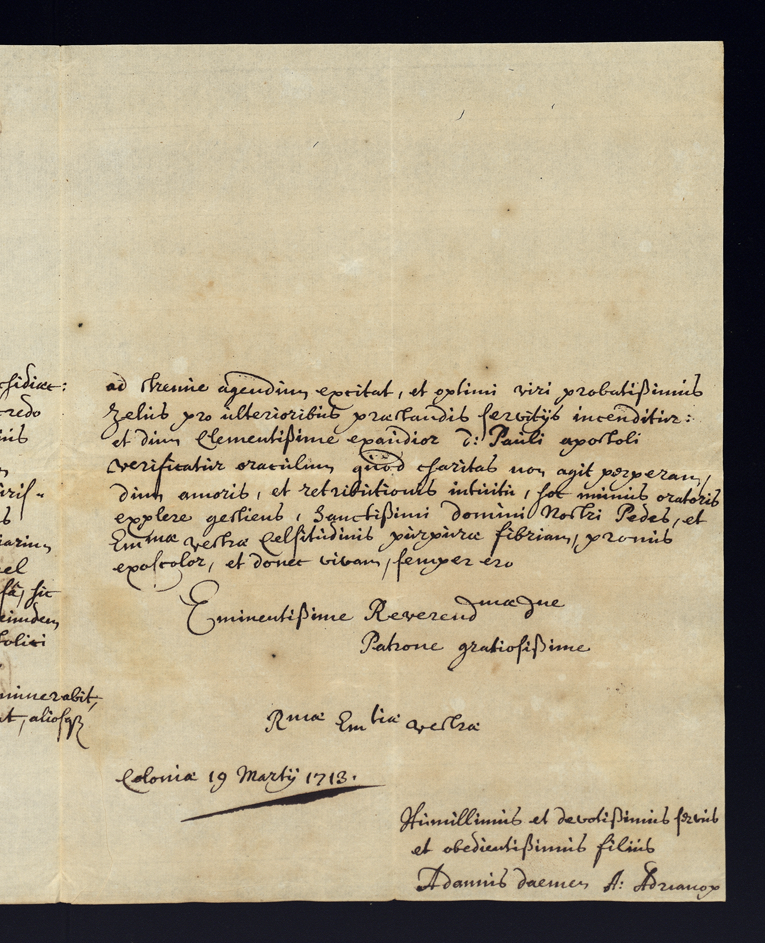 sidiæ:
credo
ad strenue agendum excitat, et optimi viri probatißimus
zelus pro ulterioribus præstandis servitijs incenditur:
et dum Clementißime exaudior d: Pauli apostoli
verificatur oraculum quod charitas non agit perperam,
dum amoris, et retributionis intuitu, hoc munus oratoris
explere gestiens, Sanctißimi Domini Nostri Pedes, et
Emmæ vestræ Celsitudinis purpuræ fibriam, pronus
exoscolor, et donec vivam, semper ero
fâ, sic
eiusdem
numerabit,
at, aliosq;
Eminentißime Reverendmæ Dne
Patrone gratiosißime
Rmæ Emtiæ vestræ
Coloniæ 19 Martij 1713.
Humillimus et devotißimus servus
et obedientißimus filius
Adamus Daemen A: Adrianop